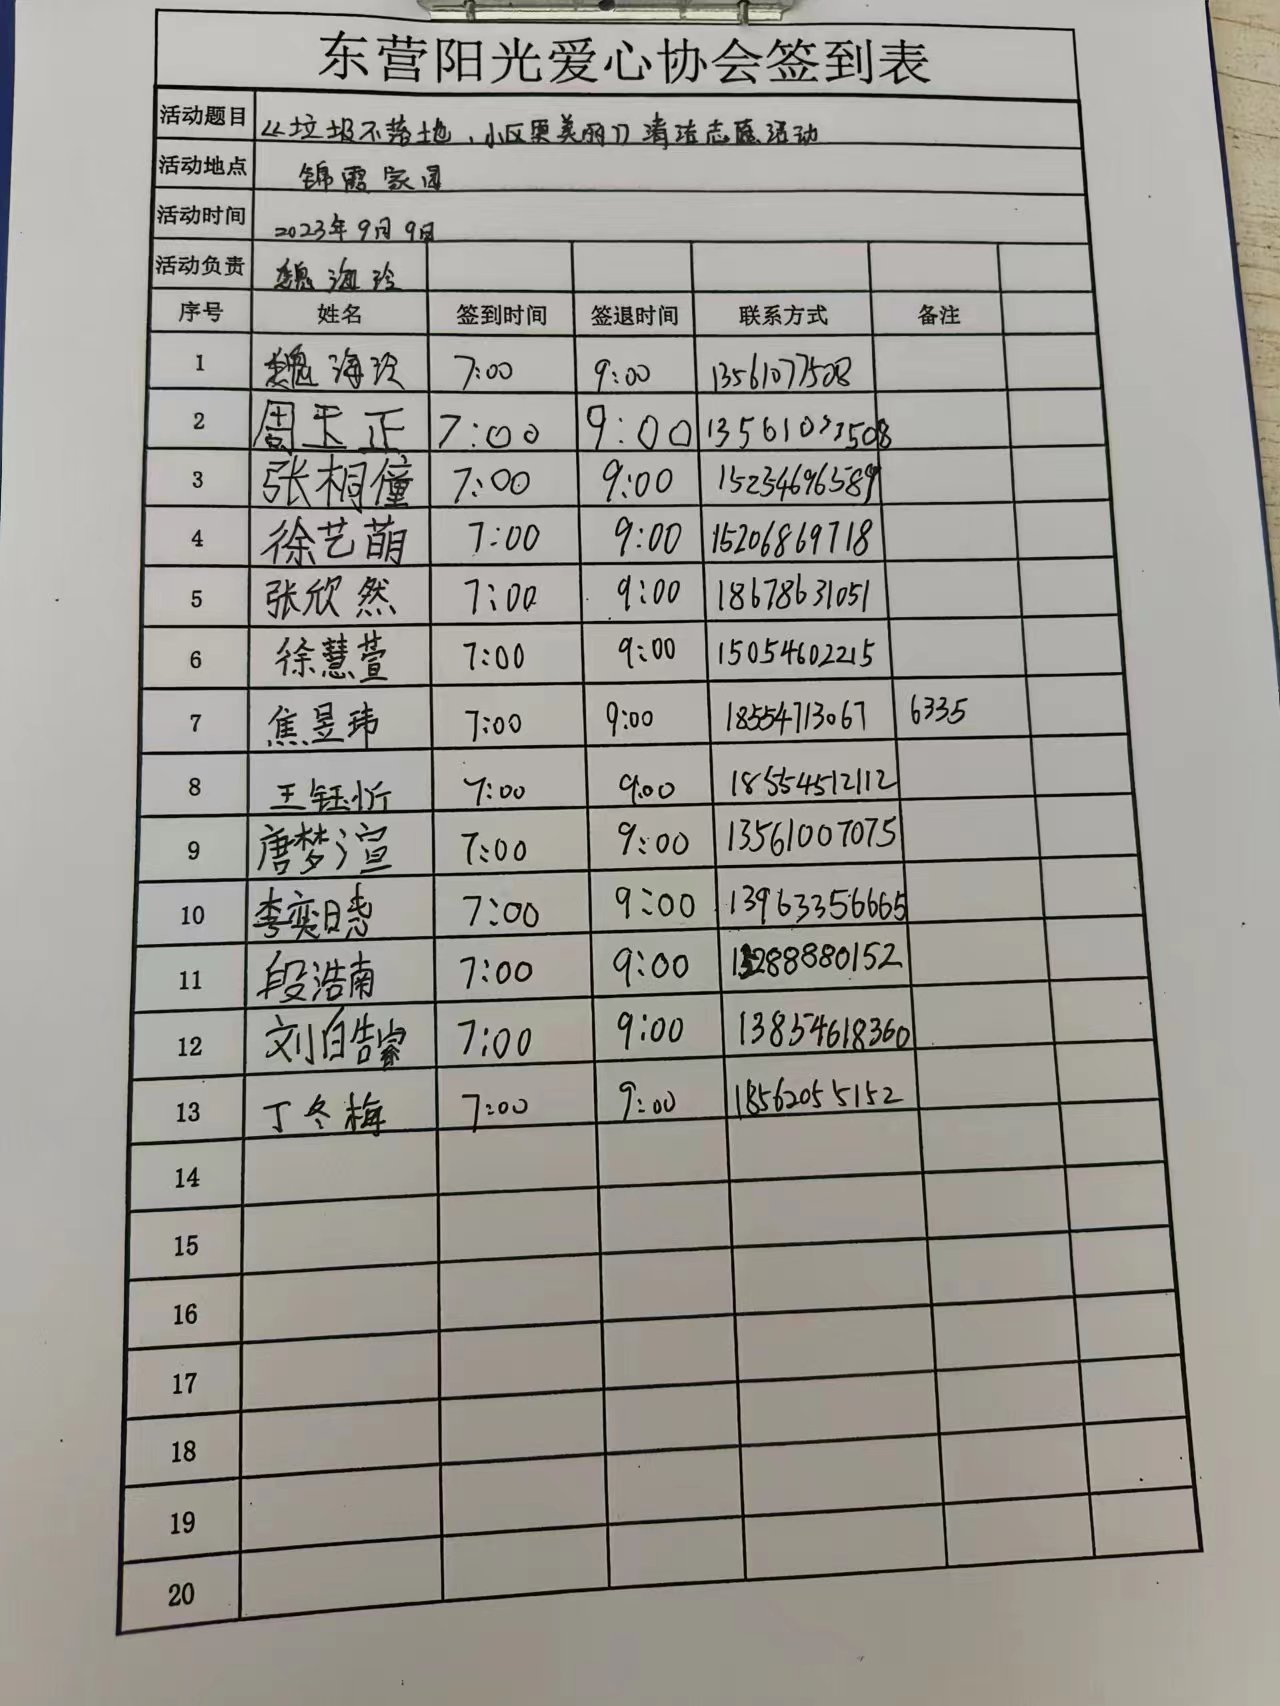 东营阳光爱心协会签到表
活动题目 《垃圾不落地，小区更美丽》清洁志愿活动
活动地点 锦霞家园
活动时间 2023年9月9日
活动负责 魏海玲
序号 姓名 签到时间 签退时间 联系方式 备注
1 魏海玲 7:00 9:00 13561077508
2 周玉正 7:00 9:00 13561077508
3 张桐僮 7:00 9:00 15254696589
4 徐艺萌 7:00 9:00 15206869718
5 张欣然 7:00 9:00 18678631051
6 徐慧萱 7:00 9:00 15054602215
7 焦昱玮 7:00 9:00 18554713067 6335
8 王钰忻 7:00 9:00 18554512112
9 唐梦渲 7:00 9:00 13561007075
10 李奕 7:00 9:00 13963356665
11 段浩南 7:00 9:00 15288880152
12 刘 7:00 9:00 13854618360
13 丁冬梅 7:00 9:00 18562055152
14
15
16
17
18
19
20